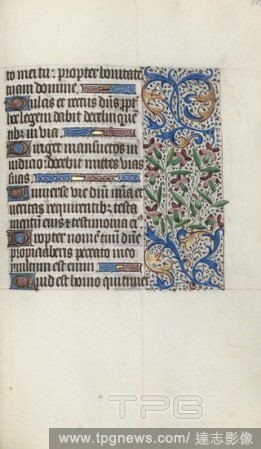 to me tu: propter bonitatē
tuam domine.
Dulcis et rectus dn̄s ꝓpt
hoc legem dabit delinquē
tibȝ in via
Diriget mansuetos in
iudicio: docebit mittes vias
suas
Universe vie dn̄i mīa et
veritas requirentibȝ testa
mentū eius et testimonia eiꝰ
Propter nomē tuū dn̄e
propiciaberis peccato meo
multum est enim
Quis est homo qui timet
TPG
www.tpgnews.com/ 達志影像